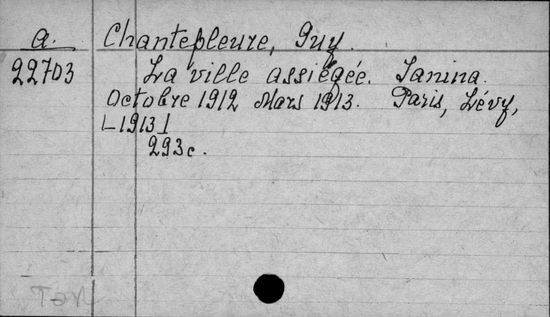 a. Chantepleure, Guy.
22703 La ville assiégée. Janina.
Octobre 1912 Mars 1913. Paris, Lévy,
[1913]
293c.